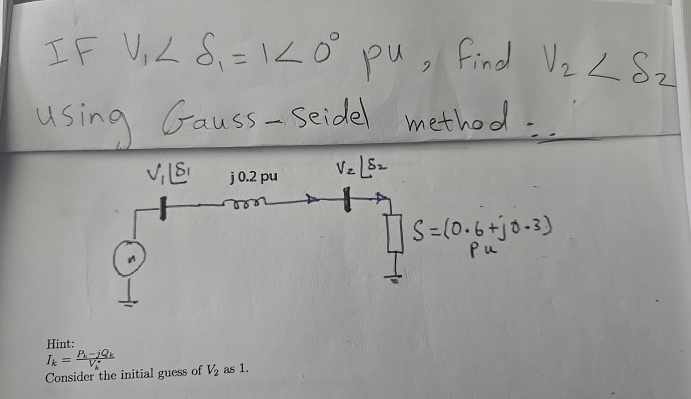 IF V₁∠δ₁ = 1∠0° pu, find V₂∠δ₂
using Gauss-seidel method :.
V₁∠δ₁ j0.2 pu V₂∠δ₂
S=(0.6+j0.3)
Pu
Hint:
Iₖ = (Pₖ−jQₖ)/Vₖ*
Consider the initial guess of V₂ as 1.